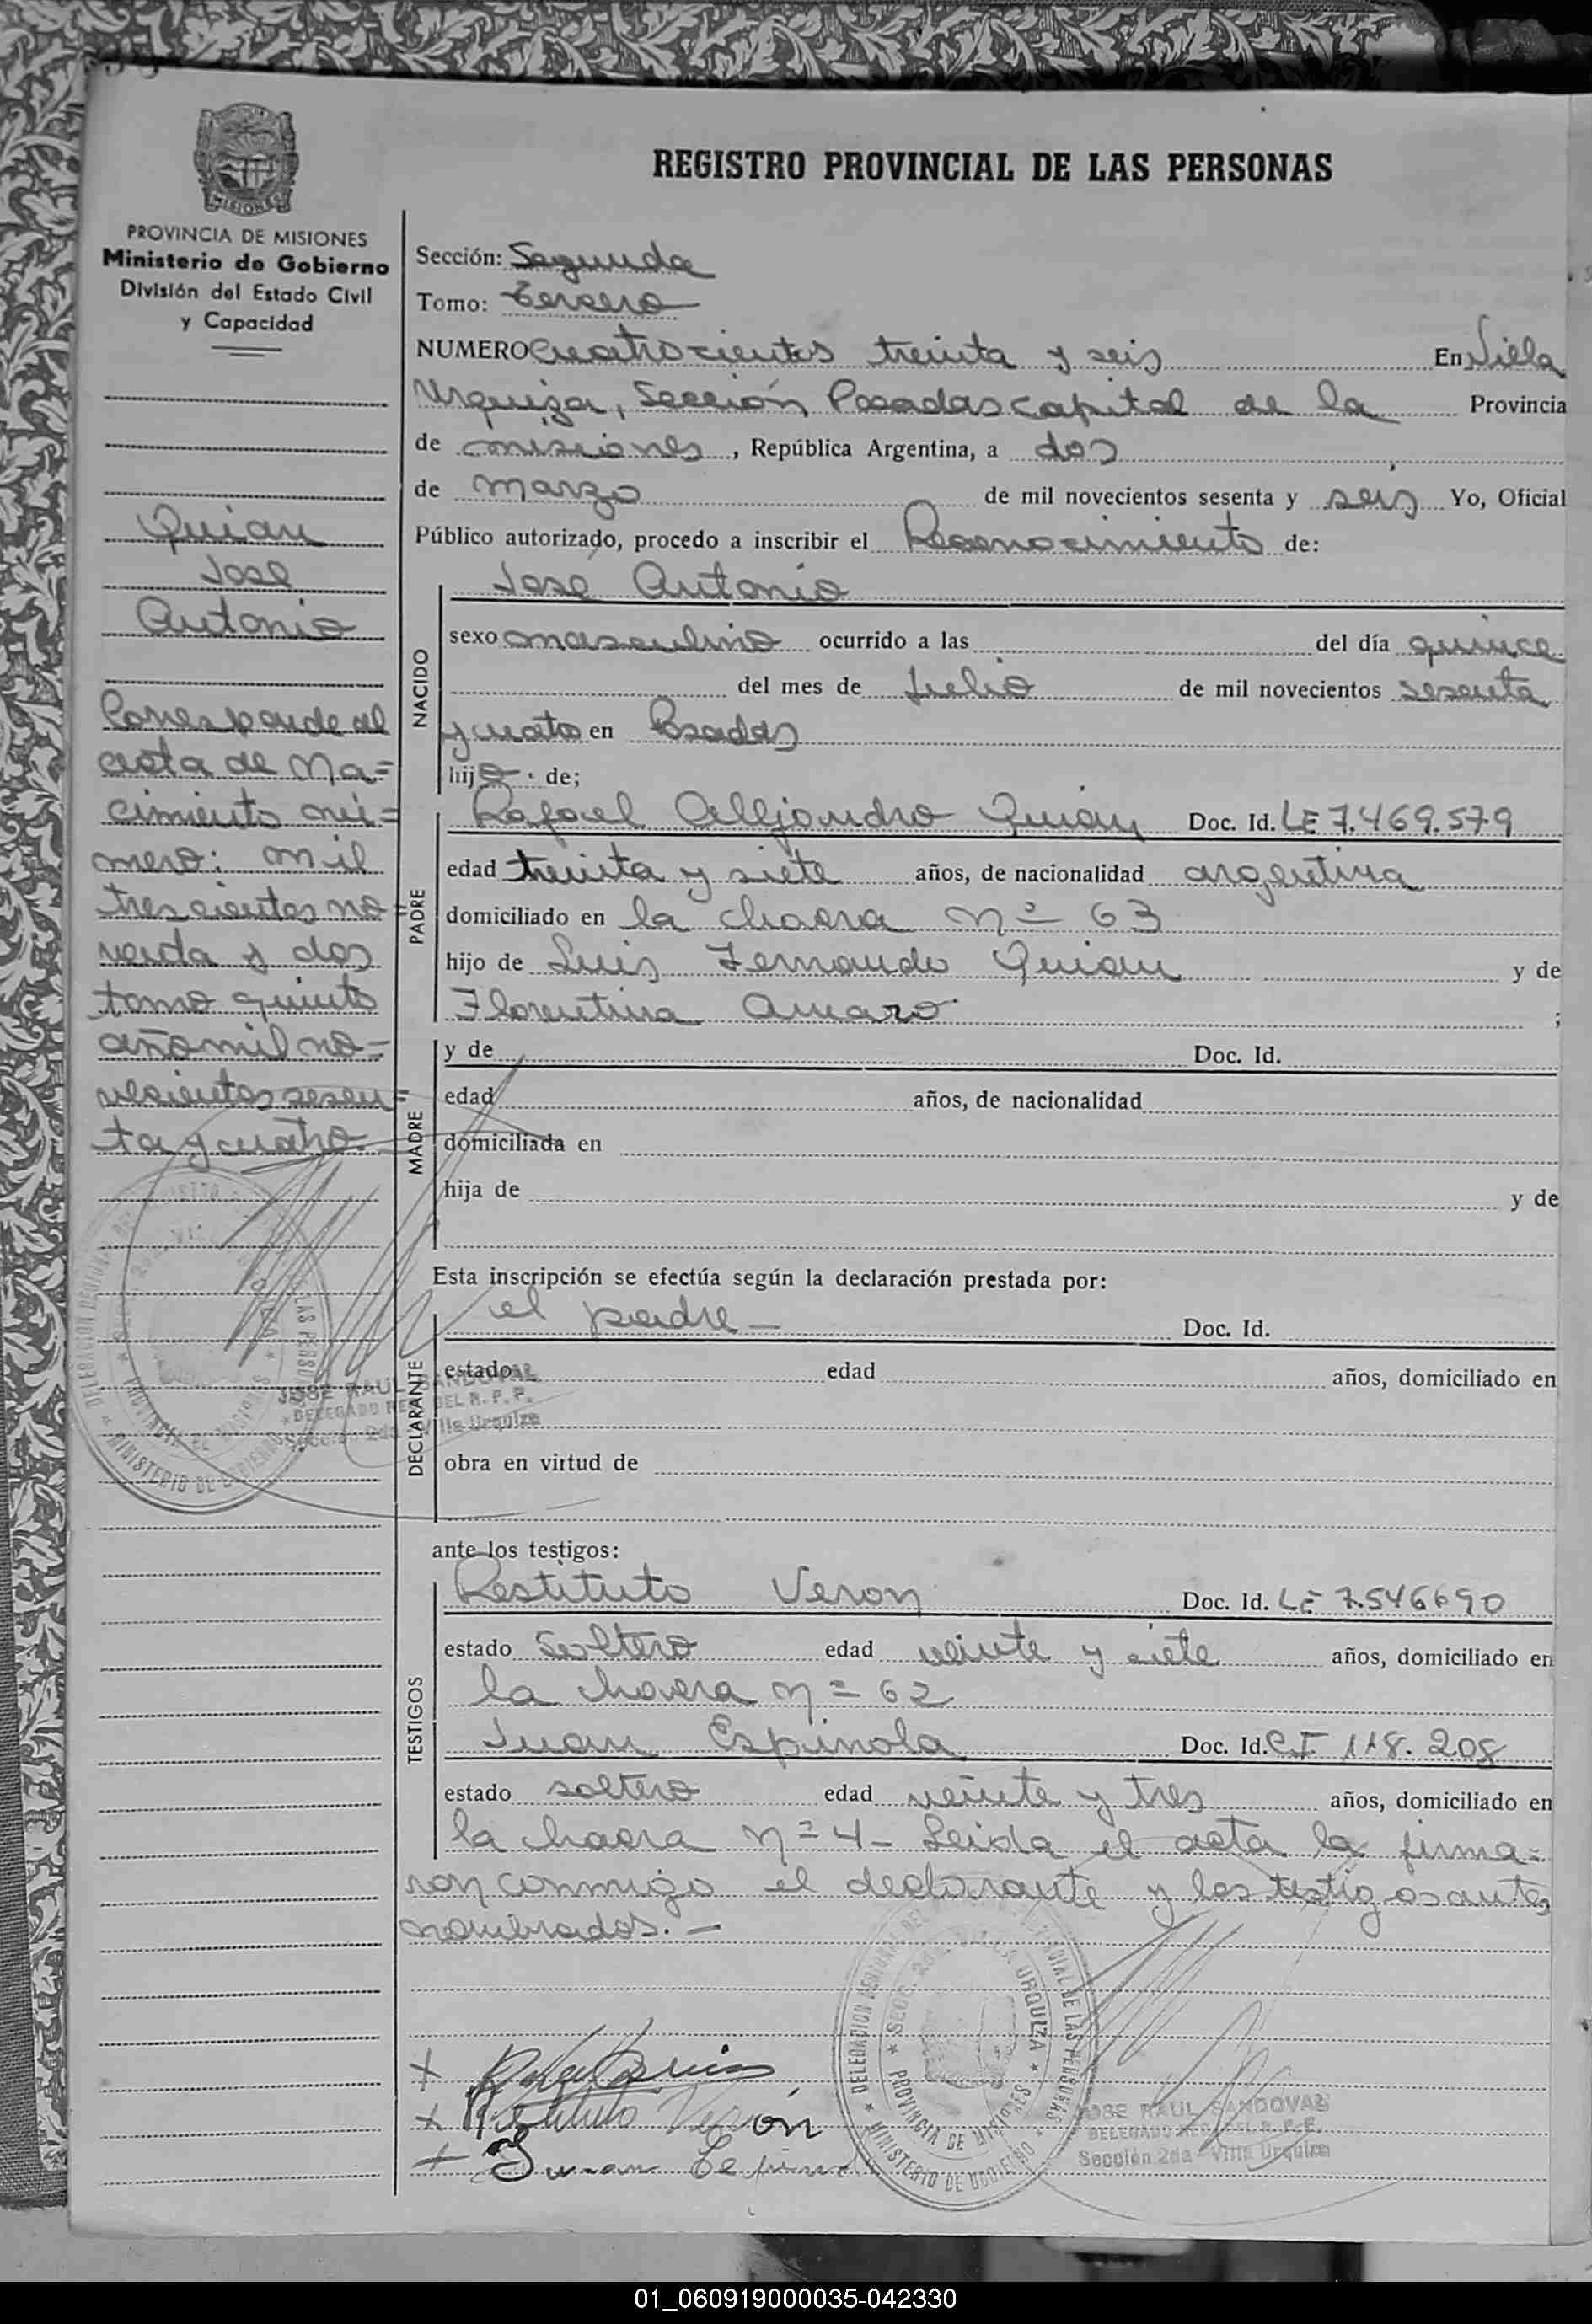 REGISTRO PROVINCIAL DE LAS PERSONAS
MISIONES
PROVINCIA DE MISIONES
Ministerio de Gobierno
División del Estado Civil
y Capacidad
Quian
José
Antonio
Corresponde al
acta de na=
cimiento nú=
mero: mil
trescientos no=
venta y dos
tomo quinto
año mil no=
vecientos sesen=
ta y cuatro.
Sección: Segunda
Tomo: Tercero
NUMERO Cuatrocientos treinta y seis En Villa
Urquiza, Sección Posadas capital de la Provincia
de misiones, República Argentina, a dos
de marzo de mil novecientos sesenta y seis Yo, Oficial
Público autorizado, procedo a inscribir el Reconocimiento de:
NACIDO
José Antonio
sexo masculino ocurrido a las del día quince
del mes de Julio de mil novecientos sesenta
y cuatro en Posadas
hijo de;
PADRE
Rafael Allejandro Quian Doc. Id. LE 7.469.579
edad treinta y siete años, de nacionalidad argentina
domiciliado en la chacra nº 63
hijo de Luis Fernando Quian y de
Florentina Amaro ;
MADRE
y de Doc. Id.
edad años, de nacionalidad
domiciliada en
hija de y de
Esta inscripción se efectúa según la declaración prestada por:
DECLARANTE
el padre - Doc. Id.
estado edad años, domiciliado en
obra en virtud de
JOSE RAUL SANDOVAL
DELEGADO REG. DEL R. P. P.
Sección 2da - Villa Urquiza
ante los testigos:
TESTIGOS
Restituto Veron Doc. Id. LE 7.546690
estado soltero edad veinte y siete años, domiciliado en
la chacra nº 62
Juan Espinola Doc. Id. C.I 118.208
estado soltero edad veinte y tres años, domiciliado en
la chacra nº 4- Leida el acta la firma=
ron conmigo el declarante y los testigos antes
nombrados. -
DELEGACION REGIONAL DEL REGISTRO PROVINCIAL DE LAS PERSONAS
SECC. 2da. VILLA URQUIZA
PROVINCIA DE MISIONES
MINISTERIO DE GOBIERNO
+ Rafael Quian
+ Restituto Verón
+ Juan Espinola
JOSE RAUL SANDOVAL
DELEGADO REG. DEL R. P. P.
Sección 2da - Villa Urquiza
01_060919000035-042330